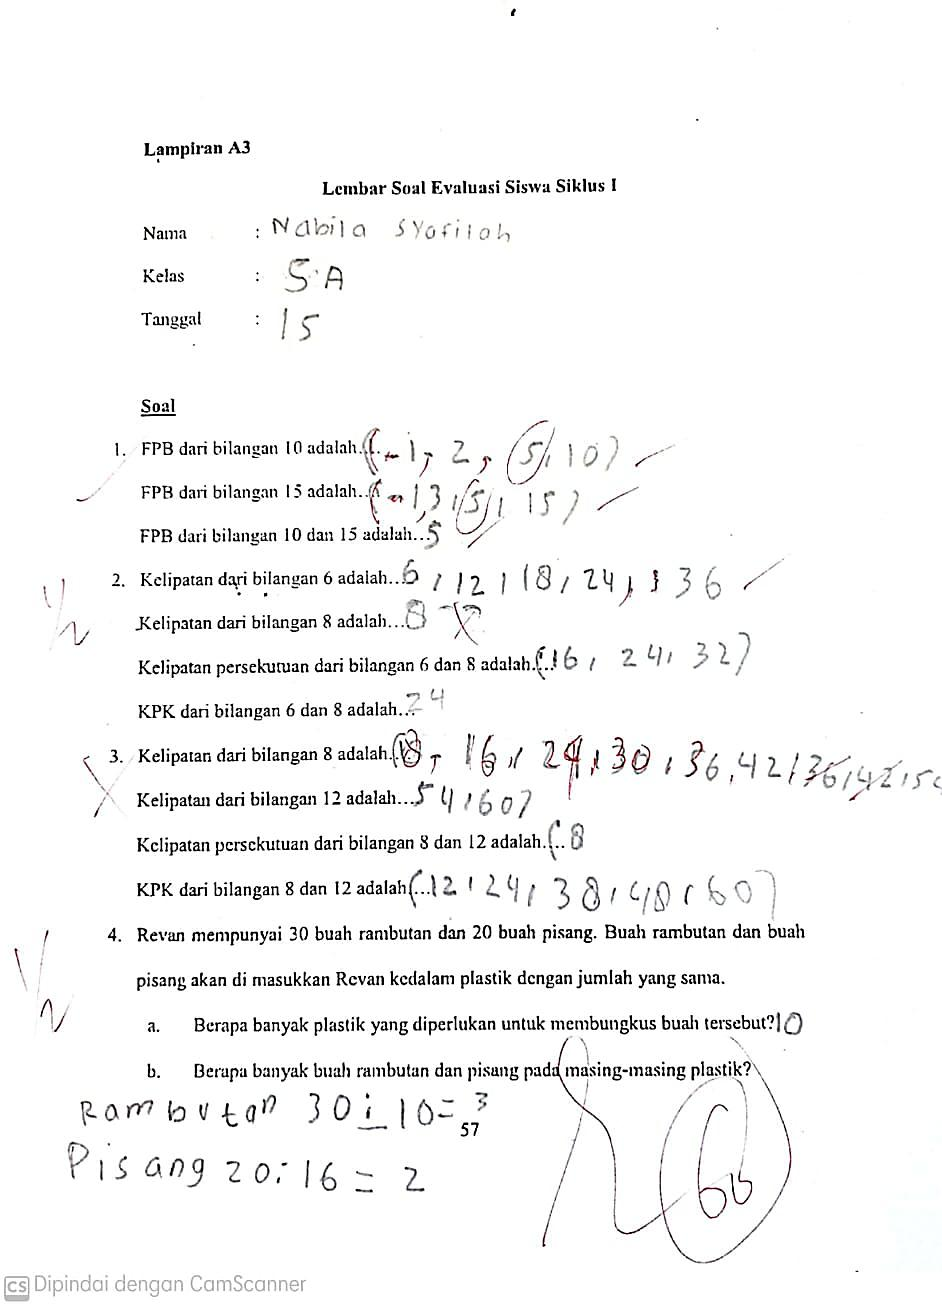 Lampiran A3
Lembar Soal Evaluasi Siswa Siklus I
Nama : Nabila Syafilah
Kelas : 5.A
Tanggal : 15
Soal
1. FPB dari bilangan 10 adalah...(1, 2, 5, 10)
FPB dari bilangan 15 adalah...(1, 3, 5, 15)
FPB dari bilangan 10 dan 15 adalah...5
1/2
2. Kelipatan dari bilangan 6 adalah...6, 12, 18, 24, 36
Kelipatan dari bilangan 8 adalah...8
Kelipatan persekutuan dari bilangan 6 dan 8 adalah...(16, 24, 32)
KPK dari bilangan 6 dan 8 adalah...24
3. Kelipatan dari bilangan 8 adalah...(8, 16, 24, 30, 36, 42, 36, 42, 54
Kelipatan dari bilangan 12 adalah...54, 60)
Kelipatan persekutuan dari bilangan 8 dan 12 adalah...(8
KPK dari bilangan 8 dan 12 adalah(...12, 24, 38, 48, 60)
1/2
4. Revan mempunyai 30 buah rambutan dan 20 buah pisang. Buah rambutan dan buah
pisang akan di masukkan Revan kedalam plastik dengan jumlah yang sama.
a. Berapa banyak plastik yang diperlukan untuk membungkus buah tersebut? 10
b. Berapa banyak buah rambutan dan pisang pada masing-masing plastik?
Rambutan 30 : 10 = 3
57
Pisang 20 : 16 = 2
60
CS Dipindai dengan CamScanner